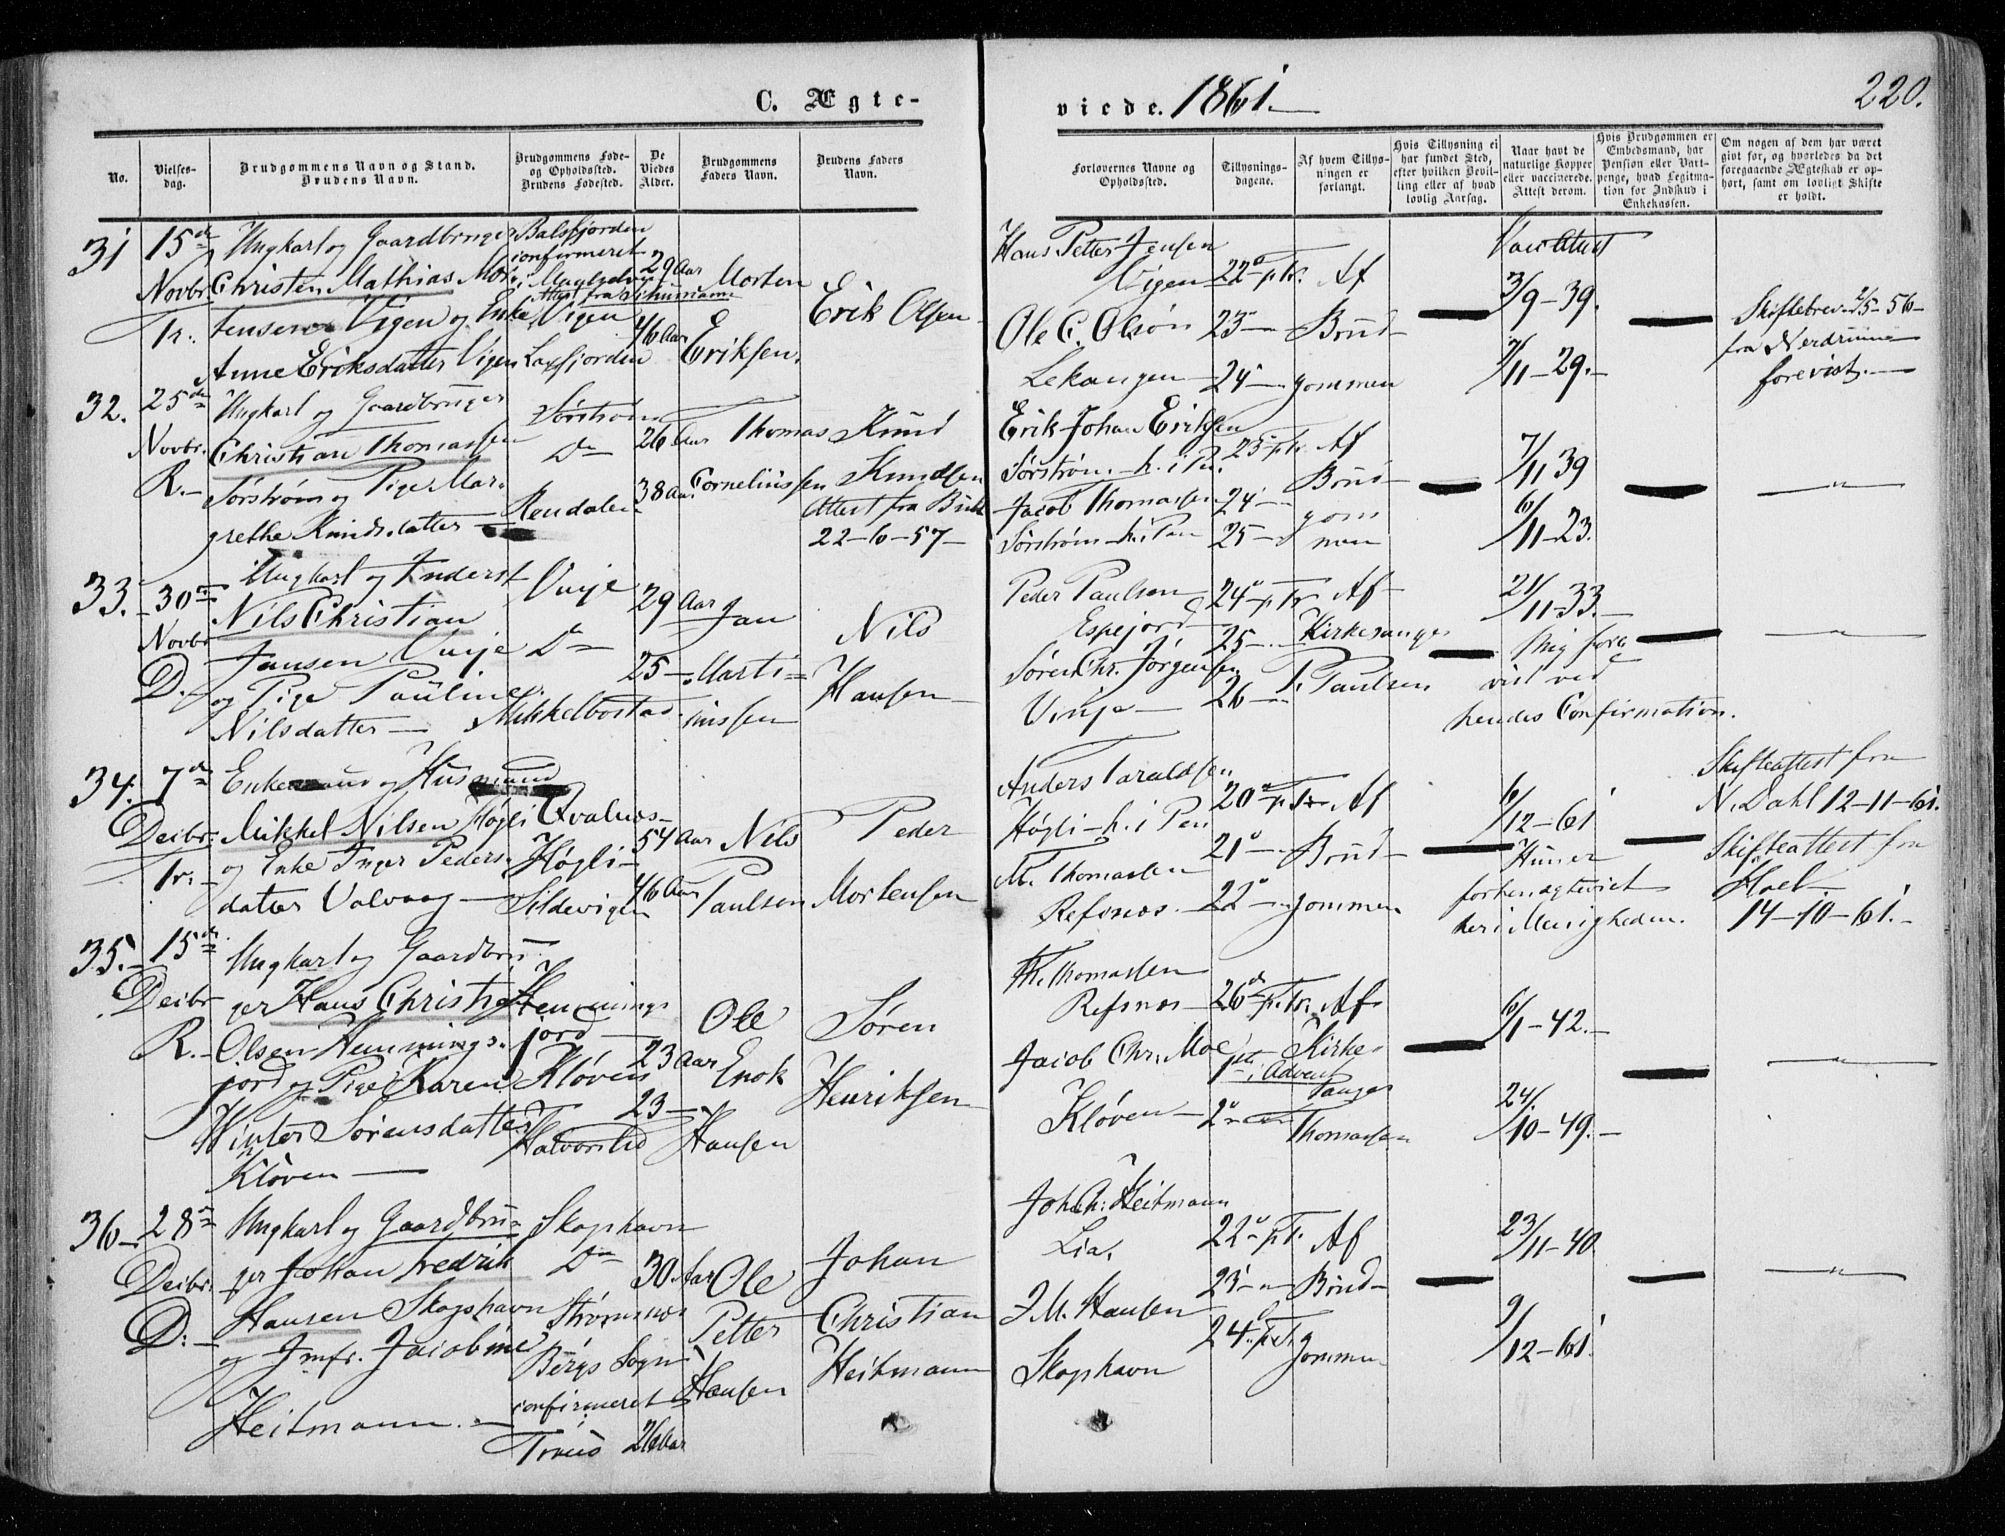 C. Ægte-
viede. 1861.
220.
No.
Vielses-
dag.
Brudgommens Navn og Stand.
Brudens Navn.
Brudgommens Føde-
og Opholdssted.
Brudens Fødested.
De
Viedes
Alder.
Brudgommens
Faders Navn.
Brudens Faders
Navn.
Forlovernes Navne og
Opholdssted.
Tillysnings-
dagene.
Af hvem Tillys-
ningen er
forlangt.
Hvis Tillysning ei
har fundet Sted,
efter hvilken Bevil-
ling eller af hvad
lovlig Aarsag.
Naar havt de
naturlige Kopper
eller vaccinerede.
Attest derom.
Hvis Brudgommen er
Embedsmand, har
Pension eller Vart-
penge, hvad Legitma-
tion for Indskud i
Enkekassen.
Om nogen af dem har været
givt før, og hvorledes da det
foregaaende Ægteskab er op-
hørt, samt om lovligt Skifte
er holdt.
31
15de
Novbr.
Tr.
Ungkarl og Gaardbruger
Christen Mathias Mor-
tensen Vigen og Enke
Anne Eriksdatter Vigen
Balsfjorden
confirmeret
Attest fra Schumann
Vigen
Laxfjorden
29 Aar
46 Aar
Morten
Eriksen.
Erik Olsen
Hans Petter Jensen
Vigen
Ole C. Olsen
Lekangen
22de p. Tr.
23 —
24 —
Af
Brud-
gommen
3/9-39.
7/11-29.
Skiftebrev 2/5-56-
fra Nerdrum
forevist.
32.
25de
Novbr.
R.-
Ungkarl og Gaardbruger
Christian Thomassen
Sørstrøm og Pige Mar-
grethe Knudsdatter
Sørstrøm
Do
Rendalen
26 Aar
38 Aar
Thomas
Corneliussen
Knud
Knudsen
Attest fra
22-6-57-
Erik Johan Eriksen
Sørstrøm h. i Pen.
Jacob Thomassen
Sørstrøm h. i Pen
23 p. Tr.
24 —
25 —
Af
Brud-
gom
men
7/11 39
6/11-23.
33.
30te
Novbr
D.-
Ungkarl og Inderst
Nils Christian
Jansen Vinje
og Pige Pauline
Nilsdatter
Vinje
Do
Mikkelbostad
29 Aar
25 —
Jan
Marti-
nussen
Nils
Hansen
Peder Paulsen
Espejord
Søren Chr. Jørgensen
Vinje
24 p. Tr.
25 —
26 —
Af
Kirkesanger
P. Paulsen
21/11-33.
Mig fore
vist ved
hendes Confirmation.
34.
7de
Decbr.
Tr.-
Enkemand og Husmand
Mikkel Nilsen Høgli
og Enke Inger Peders-
datter Valvaag
Kvalnes-
Høgli-
Sildevigen
54 Aar
46 Aar
Nils
Paulsen
Peder
Mortensen
Anders Taraldsen
Høgli h. i Pen
M. Thomassen
Refsnes.
20 p. Tr.
21 —
22 —
Af
Brud-
gommen
6/12-61
Hun er
her i Menigheden.
Skifteattest fra
N. Dahl 12-11-61.
Skifteattest fra
Holst
14-10-61.-
35.-
15de
Decbr
R.-
Ungkarl og Gaardbru-
ger Hans Christian
Olsen Hemmings-
jord og Pige Karen
Winter Sørensdatter
Kløven
Hemmings
jord
Kløven
Halvorslid
23 Aar
23 —
Ole
Enok
Hansen
Søren
Henriksen
Th. Thomassen
Refsnes
Jacob Chr. Moe
Kløven
26de p. Tr.
1ste i Advent
2
Af
Kirke-
sanger
Thomassen
6/1-42.
24/10-49.-
36.-
28de
Decbr.
D:-
Ungkarl og Gaardbru-
ger Johan Fredrik
Hansen Skogshavn
og Jmfr. Jacobine
Heitmann.-
Skogshavn
Do
Strømsnes
Bergs Sogn
confirmeret i
Tromsø
30 Aar
26 Aar
Ole
Petter
Hansen
Johan
Christian
Heitmann
Joh. Ch. Heitmann
Lia.
J. M. Hansen
Skogshavn
22 p. Tr.
23 —
24 p. Tr.
Af
Brud-
gommen
23/11-40
9/12-61.